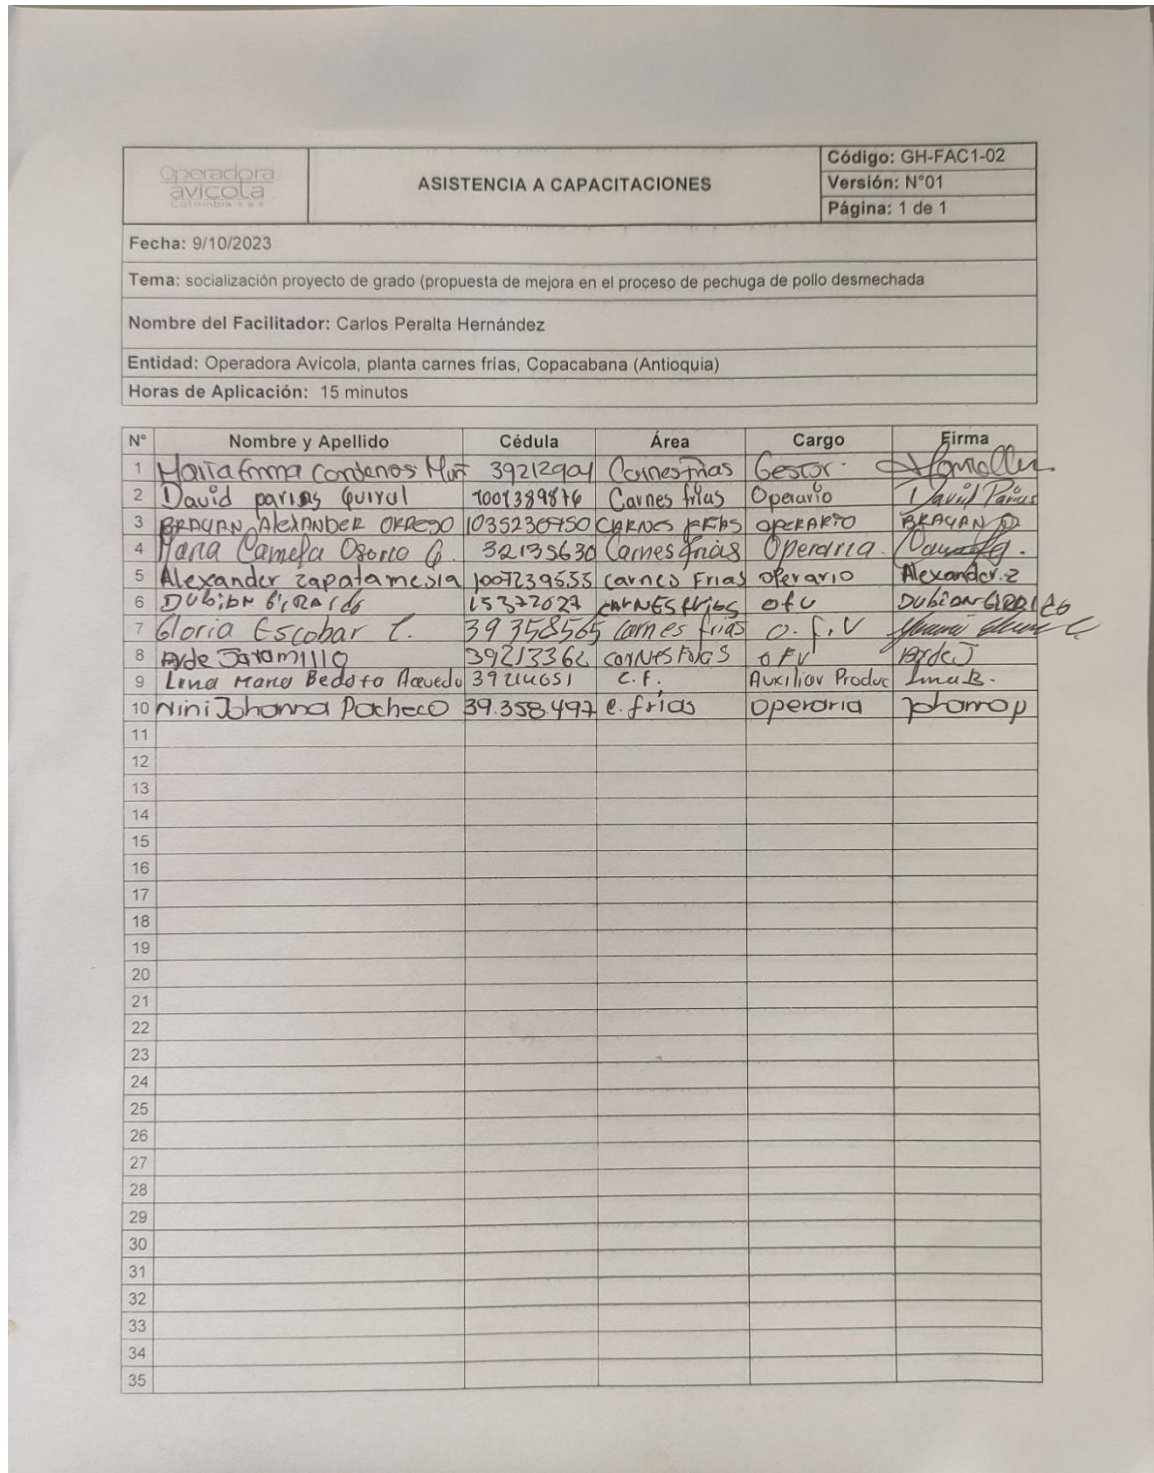 Operadora
avícola
Colombia s a s
ASISTENCIA A CAPACITACIONES
Código: GH-FAC1-02
Versión: N°01
Página: 1 de 1
Fecha: 9/10/2023
Tema: socialización proyecto de grado (propuesta de mejora en el proceso de pechuga de pollo desmechada
Nombre del Facilitador: Carlos Peralta Hernández
Entidad: Operadora Avícola, planta carnes frías, Copacabana (Antioquia)
Horas de Aplicación: 15 minutos
N° Nombre y Apellido Cédula Área Cargo Firma
1 Maria Emma Cardenas 39212904 Carnes frias Gestor.
2 David parias Quiral Carnes frias Operario David Parias
3 BRAYAN Alexander ORREGO 1035230750 CARNES FRIAS OPERARIO BRAYAN O
4 Maria Camela Osorio G. 32135630 Carnes frias Operaria.
5 Alexander zapata mesia carnes Frias operario Alexander.z
6 DubiaN GiRALdo 15372027 CARNES frias ofv DubiaN GIRALdo
7 Gloria Escobar C. 39358565 Carnes frias O.F.V
8 Jaramillo 39213362 CarNes FriaS oFV
9 Lina Maria Bedoya Acevedo C.F. Auxiliar Produc Lina B.
10 Nini Johanna Pacheco 39.358.497 c.frías operaria Johana p
11
12
13
14
15
16
17
18
19
20
21
22
23
24
25
26
27
28
29
30
31
32
33
34
35